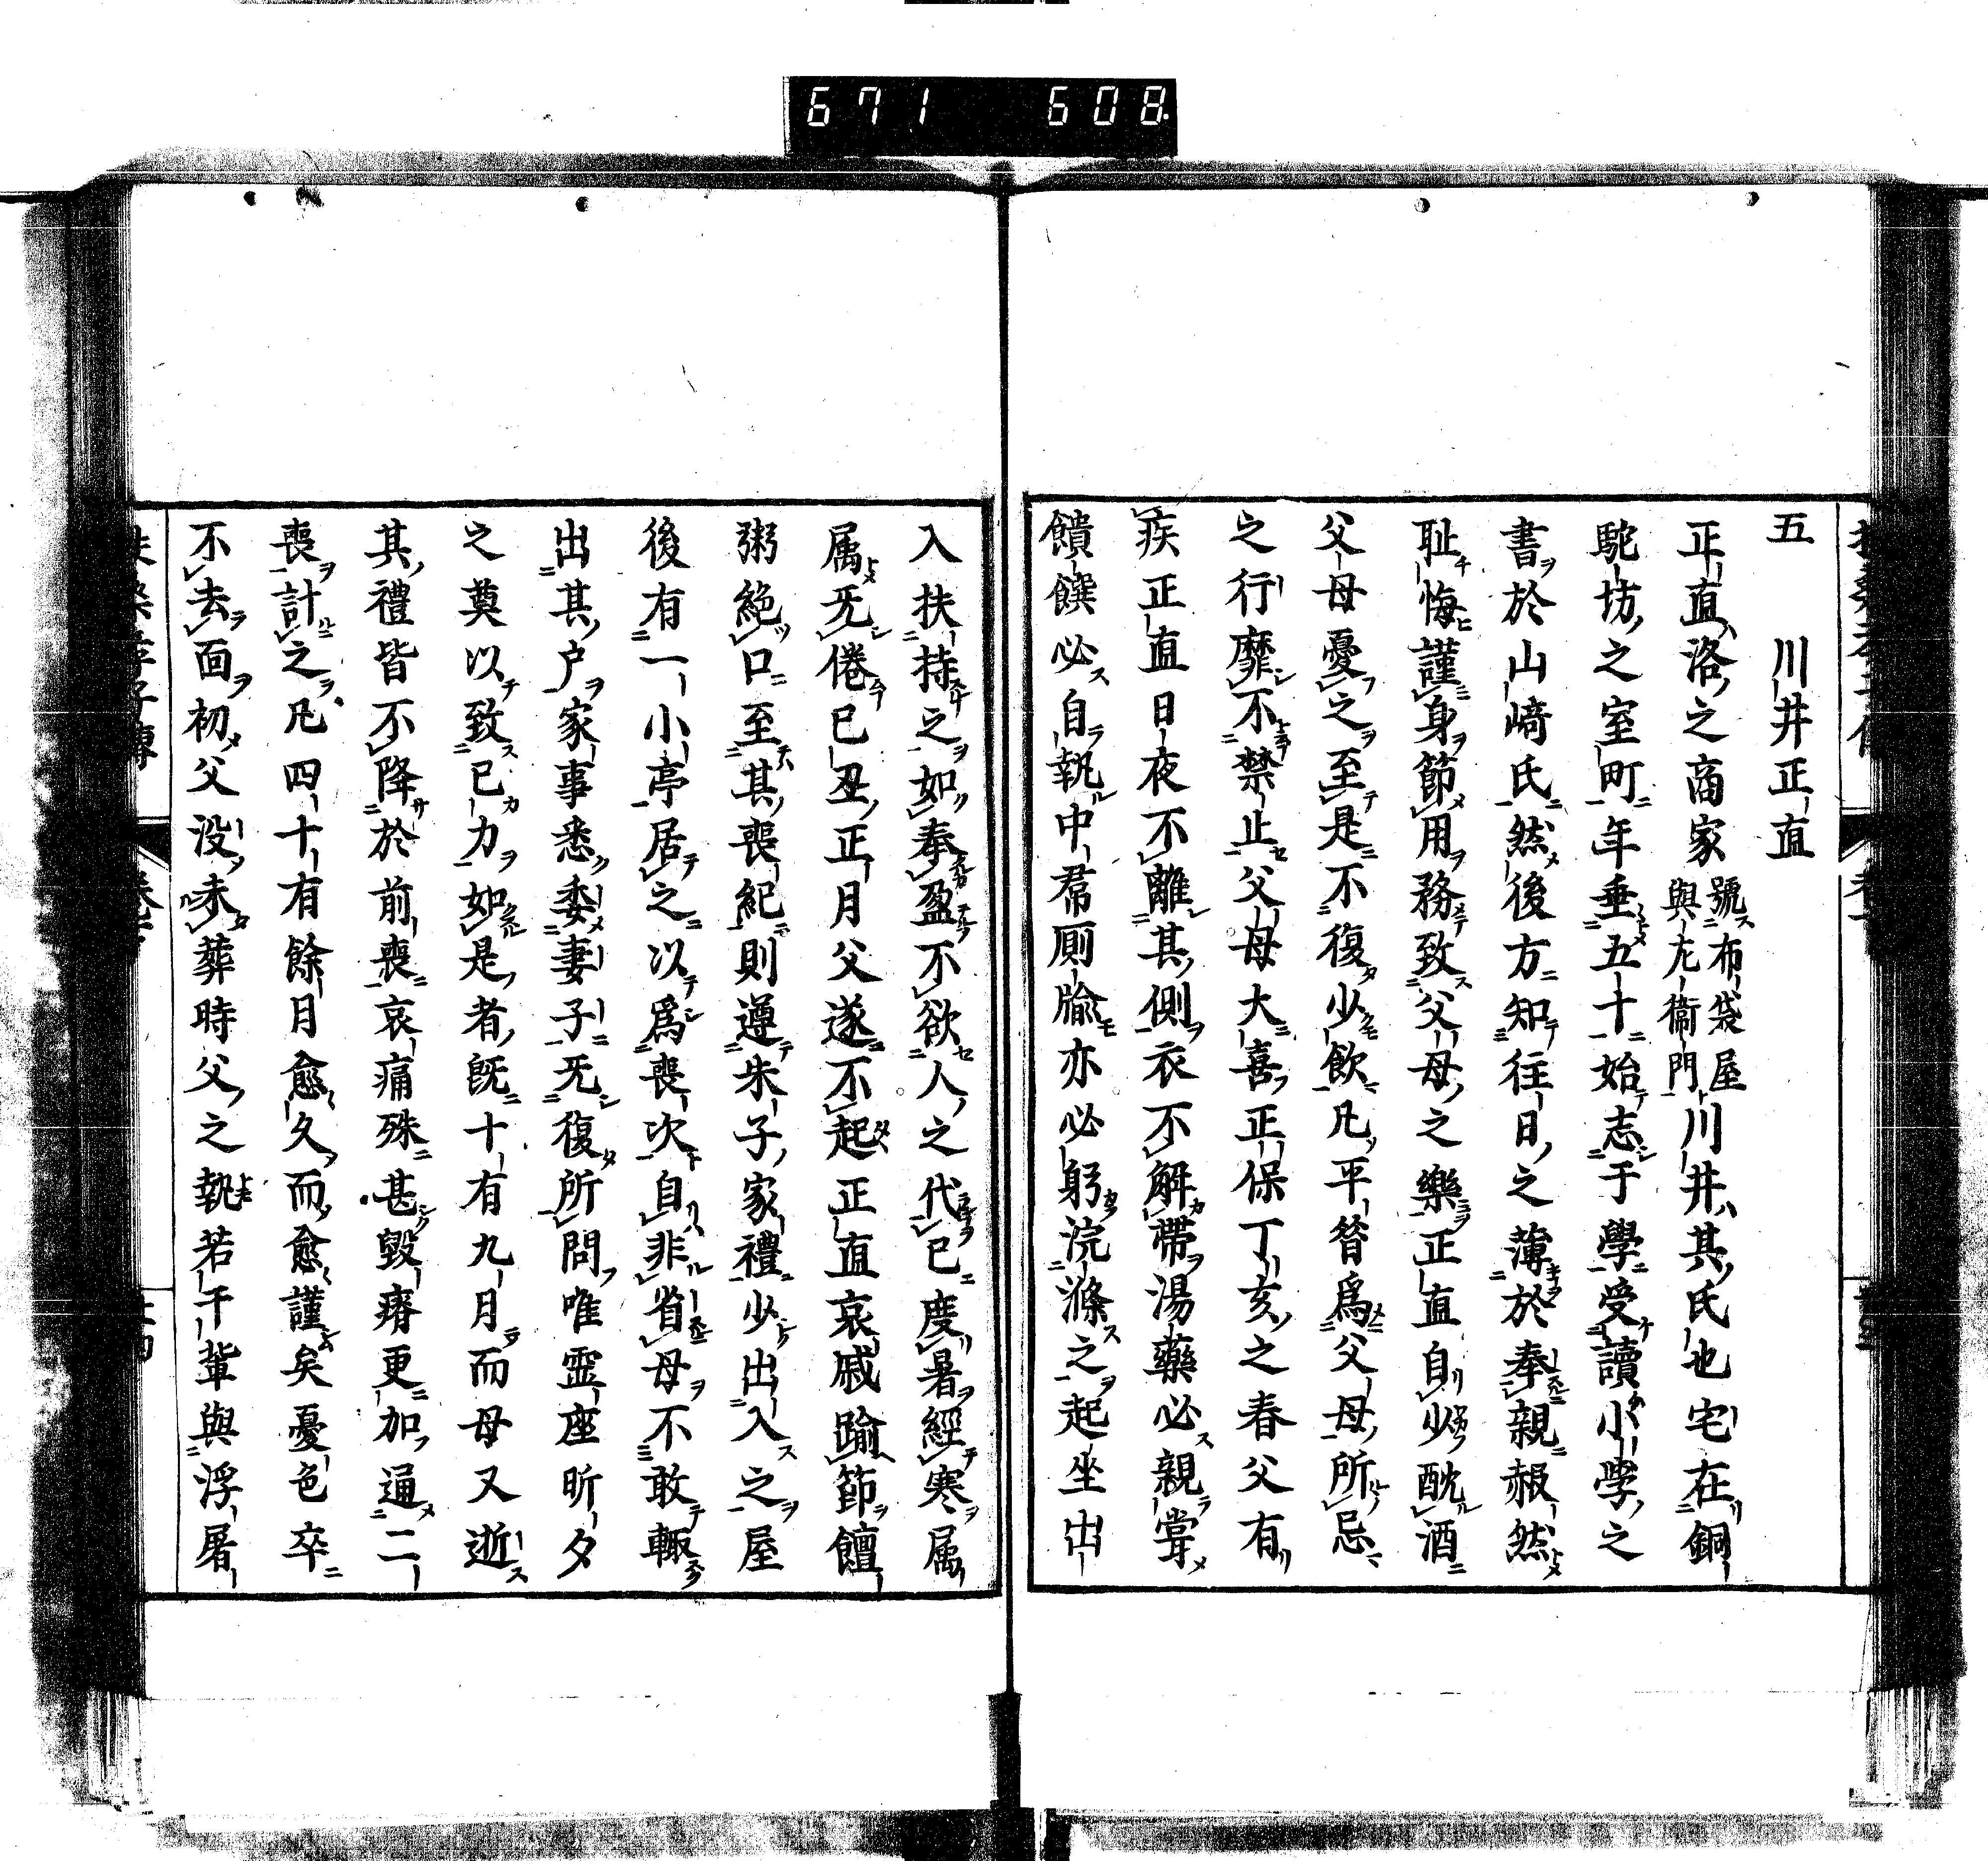 671 608
五 川井正直
正直洛之商家號布袋屋與左衛門川井其氏也宅在銅
駝坊之室町年垂五十始志于學受讀小學之
書於山﨑氏然後方知往日之薄於奉親赧然
耻悔謹身節用務致父母之樂正直自少酖酒
父母憂之至是不復少飲凡平昝爲父母所忌
之行靡不禁止父母大喜正保丁亥之春父有
疾正直日夜不離其側衣不解帶湯藥必親甞
饋饌必自執中帬厠牏亦必躬浣滌之起坐出
入扶持之如奉盈不欲人之代已度暑經寒属
属旡倦已丑正月父遂不起正直哀戚踰節饘
粥絶口至其喪紀則遵朱子家禮少出入之屋
後有一小亭居之以爲喪次自非省母不敢輙
出其户家事悉委妻子旡復所問唯霊座昕夕
之奠以致已力如是者既十有九月而母又逝
其禮皆不降於前喪哀痛殊甚毀瘠更加逼二
喪計之凡四十有餘月愈久而愈謹矣憂色卒
不去面初父没未葬時父之執若干輩與浮屠